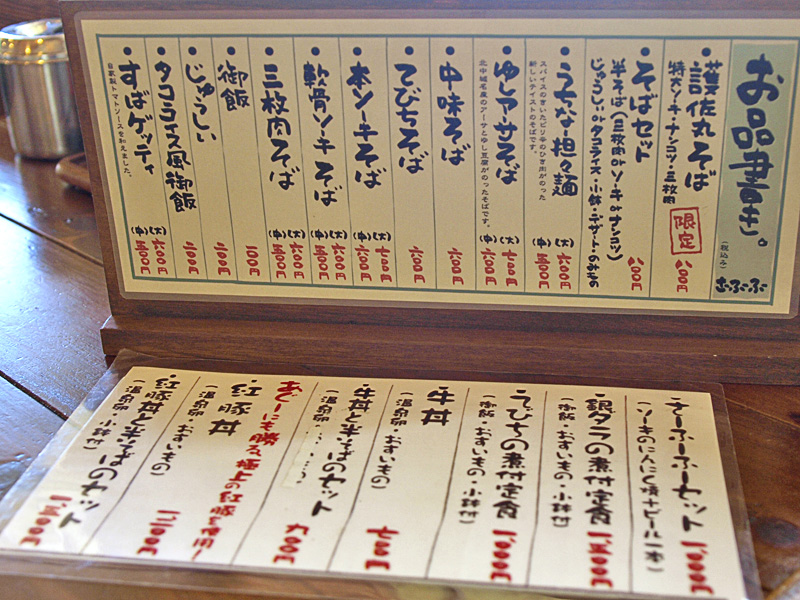 お品書き。
(税込み)
さふふ
・護佐丸そば
特大ソーキ・ナンコツ・三枚肉
限定
八00円
・そばセット
半そば(三枚肉orソーキorナンコツ)
じゅうしぃorタコライス・小鉢・デザート・のみもの
八00円
・うちなー担々麺
スパイスのきいたピリ辛のひき肉がのった
新しいテイストのそばです。
(大)六00円
(中)五00円
・ゆしアーサそば
北中城名産のアーサとゆし豆腐がのったそばです。
(大)七00円
(中)六00円
・中味そば
六00円
・てびちそば
六00円
・本ソーキそば
(大)七00円
(中)六00円
・軟骨ソーキそば
(大)六00円
(中)五00円
・三枚肉そば
(大)六00円
(中)五00円
・御飯
一00円
・じゅうしぃ
二00円
・タコライス風御飯
二00円
・すばゲッティ
自家製トマトソースを和えました。
(大)六00円
(中)五00円
・さーふーふーセット
(ソーキのにんにく焼+ビール一本)
一、000円
・銀ダラの煮付定食
(御飯・おすいもの・小鉢付)
一、五00円
・てびちの煮付定食
(御飯・おすいもの・小鉢付)
一、000円
・牛丼
(温泉卵 おすいもの)
七五0円
・牛丼と半そばのセット
(温泉卵
九00円
あぐーにも勝る極上の紅豚を使用!!
・紅豚丼
(温泉卵 おすいもの)
一、二00円
・紅豚丼と半そばのセット
(温泉卵 小鉢付)
一、五00円